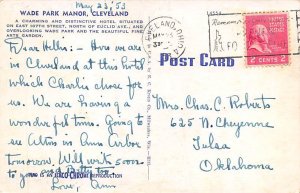 May 23, '53
WADE PARK MANOR, CLEVELAND
A CHARMING AND DISTINCTIVE HOTEL SITUATED
ON EAST 107TH STREET, NORTH OF EUCLID AVE., AND
OVERLOOKING WADE PARK AND THE BEAUTIFUL FINE
ARTS GARDEN.
Dear Hellis: - Here we are
in Cleveland at this hotel
which Charlie chose for
us. We are having a
wonderful trip. Going to
Altons in Ann Arbor
tomorrow. Will write soon
to you and Betty too
Love, Ann
REPRODUCTION
CLEVELAND, OHIO
MAY
POST CARD
2 CENTS 2
Mrs. Chas. C. Roberts
625 N. Cheyenne
Tulsa
Oklahoma